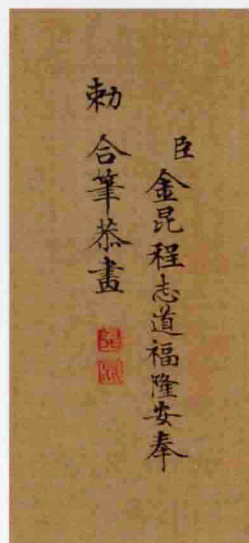 臣金昆程志道福隆安奉
勅合筆恭畫